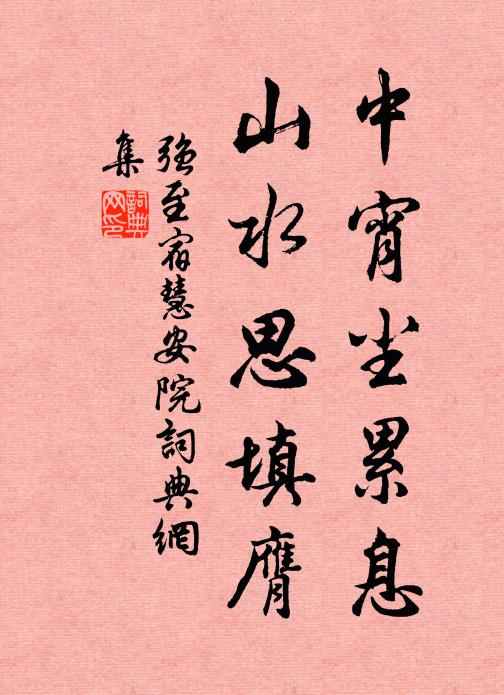 中宵尘累息
山水思填膺
强至宿慧安院詞典網
集
詞典
网印